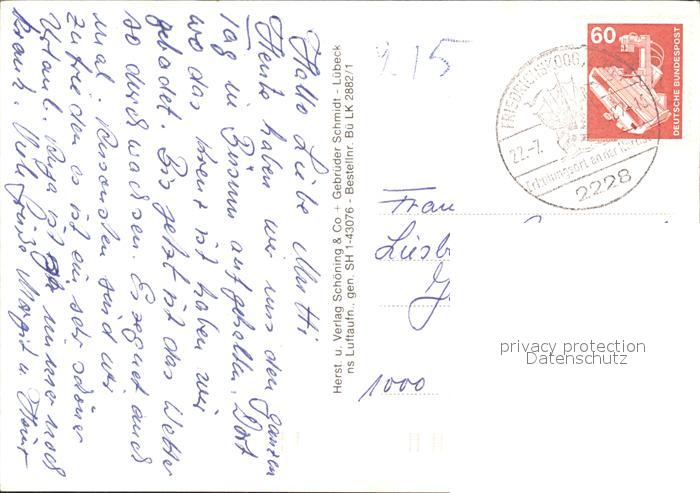 Hallo Liebe Mutti
Heute haben wir uns den ganzen
Tag in Büsum aufgehalten. Dort
wo das Kreuz ist haben wir
gebadet. Bis jetzt ist das Wetter
so durchwachsen. Es regnet auch
mal. Ansonsten sind wir
zufrieden es ist ein sehr schöner
Urlaub. ist immer noch
krank. Viele Grüße Margit u.
Herst. u. Verlag Schöning & Co + Gebrüder Schmidt - Lübeck
ns Luftaufn., gen. SH 1-43076 - Bestellnr. Bü LK 2882/1
215
FRIEDRICHSKOOG
22.-7.
Erholungsort an der Nordsee
2228
60
DEUTSCHE BUNDESPOST
Frau
Liesb
1000
privacy protection
Datenschutz